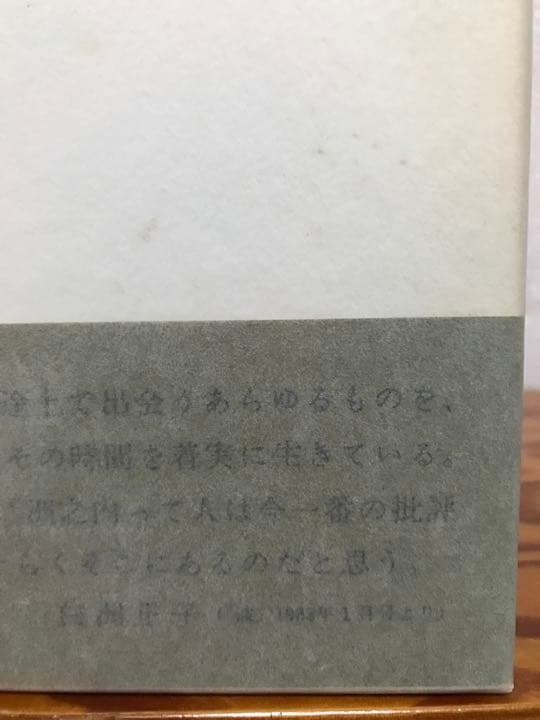 途上で出会うあらゆるものを、
その時間を着実に生きている。
洲之内って人は今一番の批評
らくそこにあるのだと思う。
白洲正子（「波」1983年1月号より）